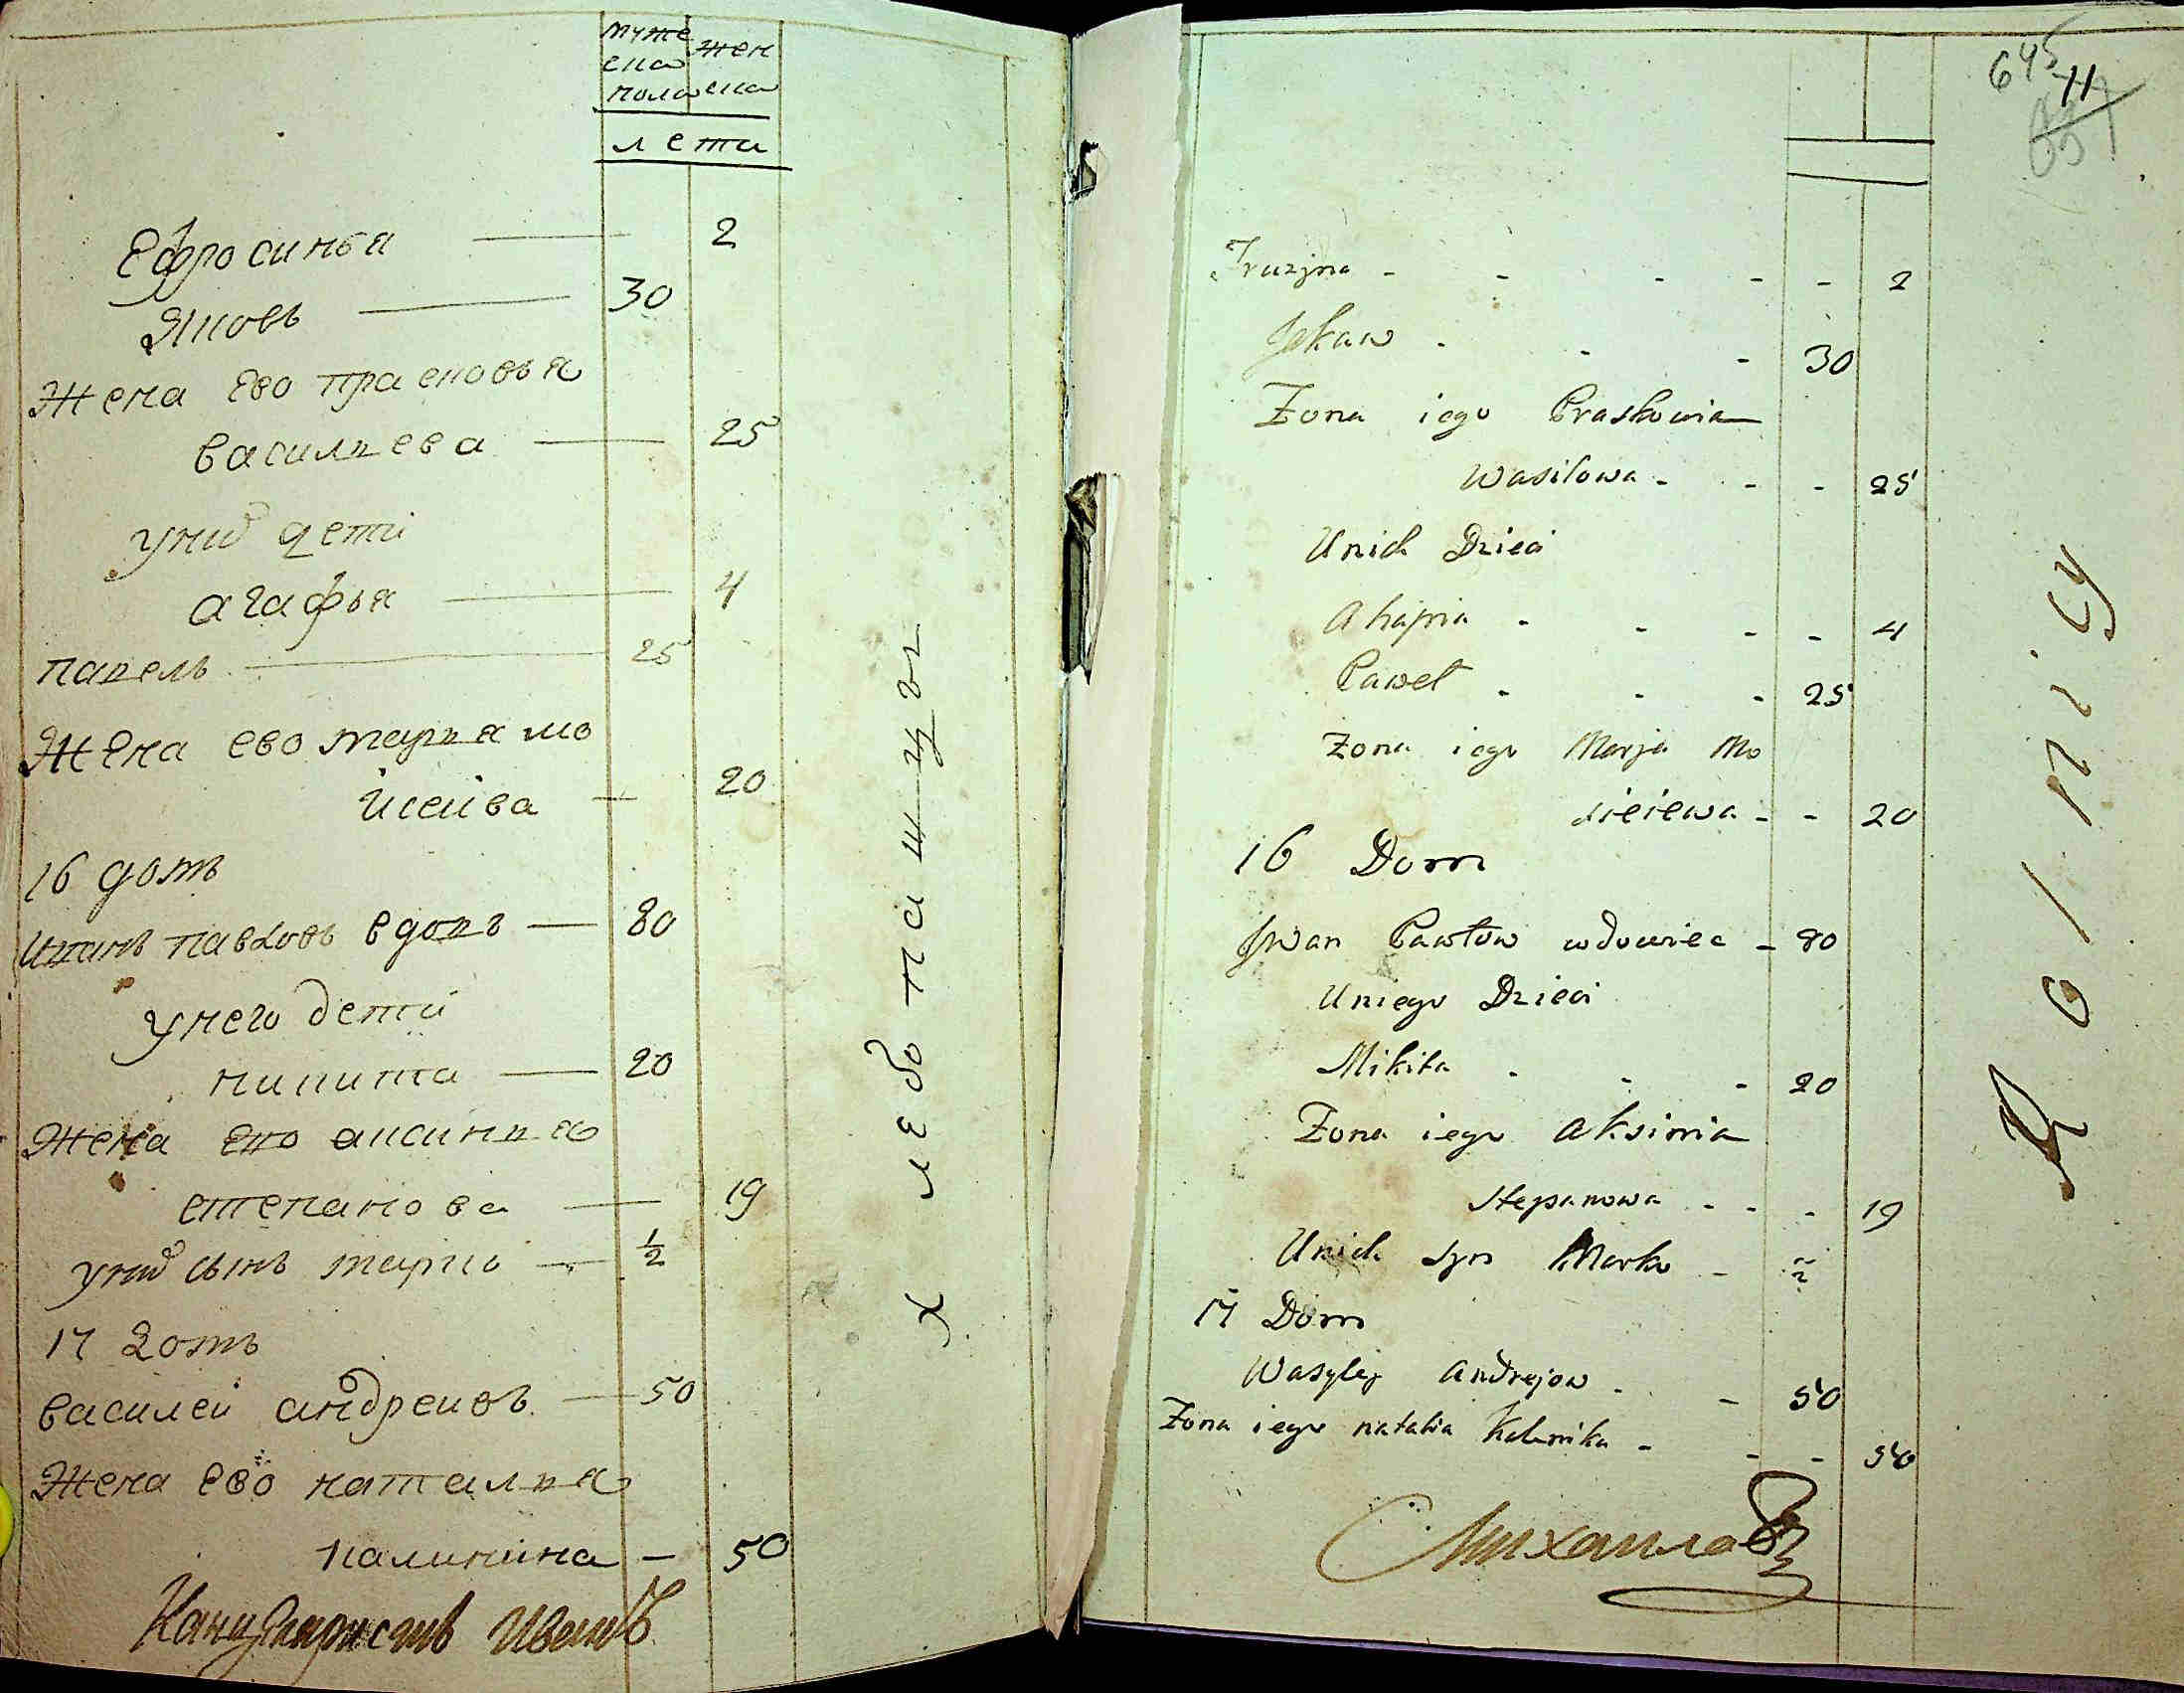 муже жен
ска ска
пола
лети
Ефросинья — 2
Яковъ — 30
Жена Ево прасковья
василпева — 25
уних дети
агафья — 4
павелъ — 25
Жена ево марпя мо
исеива — 20
16 домъ
иванъ павловъ вдовъ — 80
унего дети
никита — 20
Жена ево аксинпя
степанова — 19
уних сынъ марко — 1/2
17 домъ
василей андреивъ — 50
Жена ево наталпя
калинина — 50
хлебопашцы
645
11
Fruzjna - - - - - 2
Jakaw - - - 30
Zona iego Praskowia
Wasilowa - - - 25
Unich Dzieci
Ahapia - - - - 4
Paweł - - - 25
Zona iego Marja Mo
sieiewa - - 20
16 Dom
Jwan Pawłow wdowiec - 80
Uniego Dzieci
Mikita - - - 20
Zona iego Aksinia
Stepanowa - - - 19
Unich Syn Marko - 1/2
17 Dom
Wasylej Andrejow - - 50
Zona iego natalia Kalinika - - - 50
Rolnicy
Михаилов